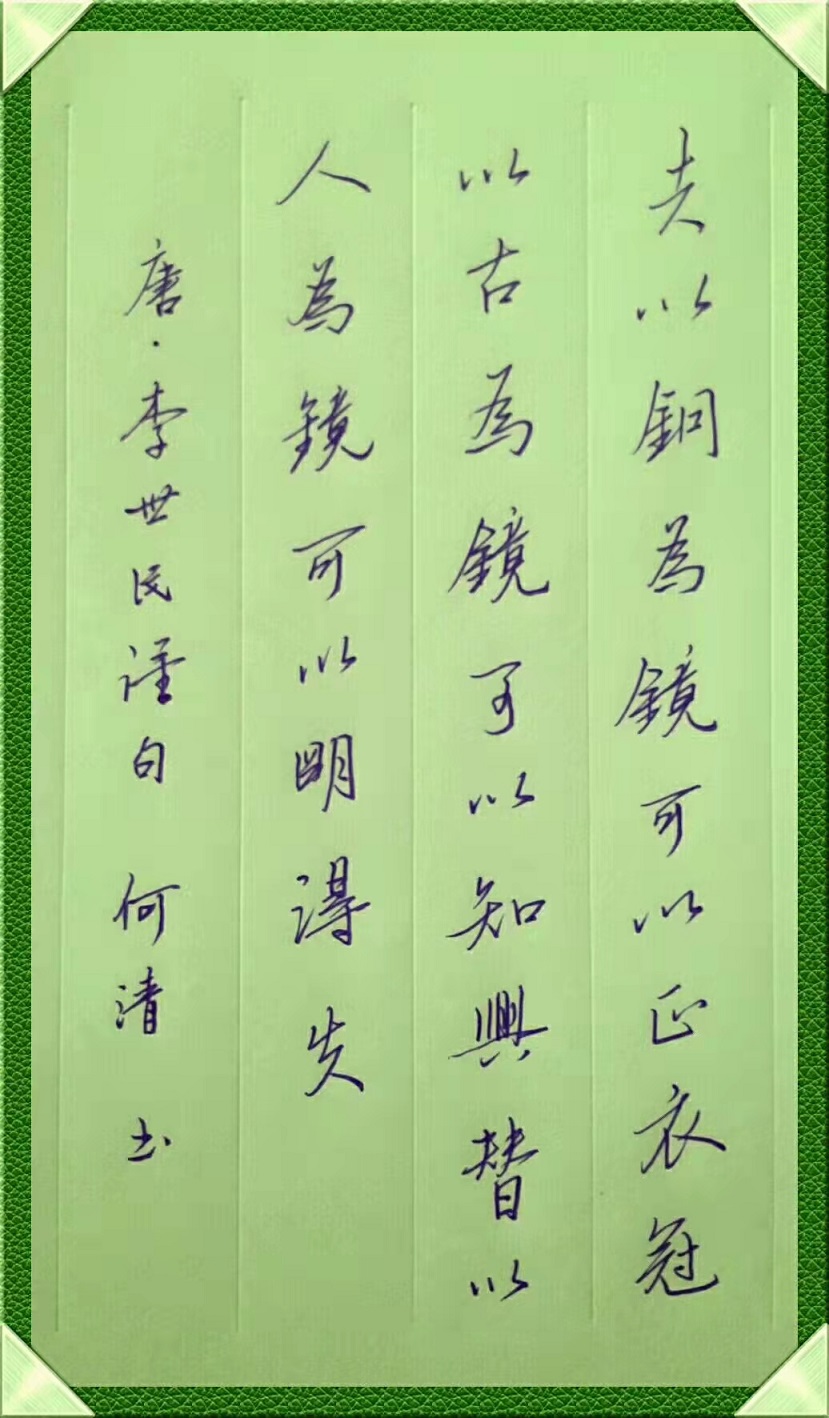 夫以銅為鏡可以正衣冠
以古為鏡可以知興替以
人為鏡可以明得失
唐·李世民謹句 何清 书